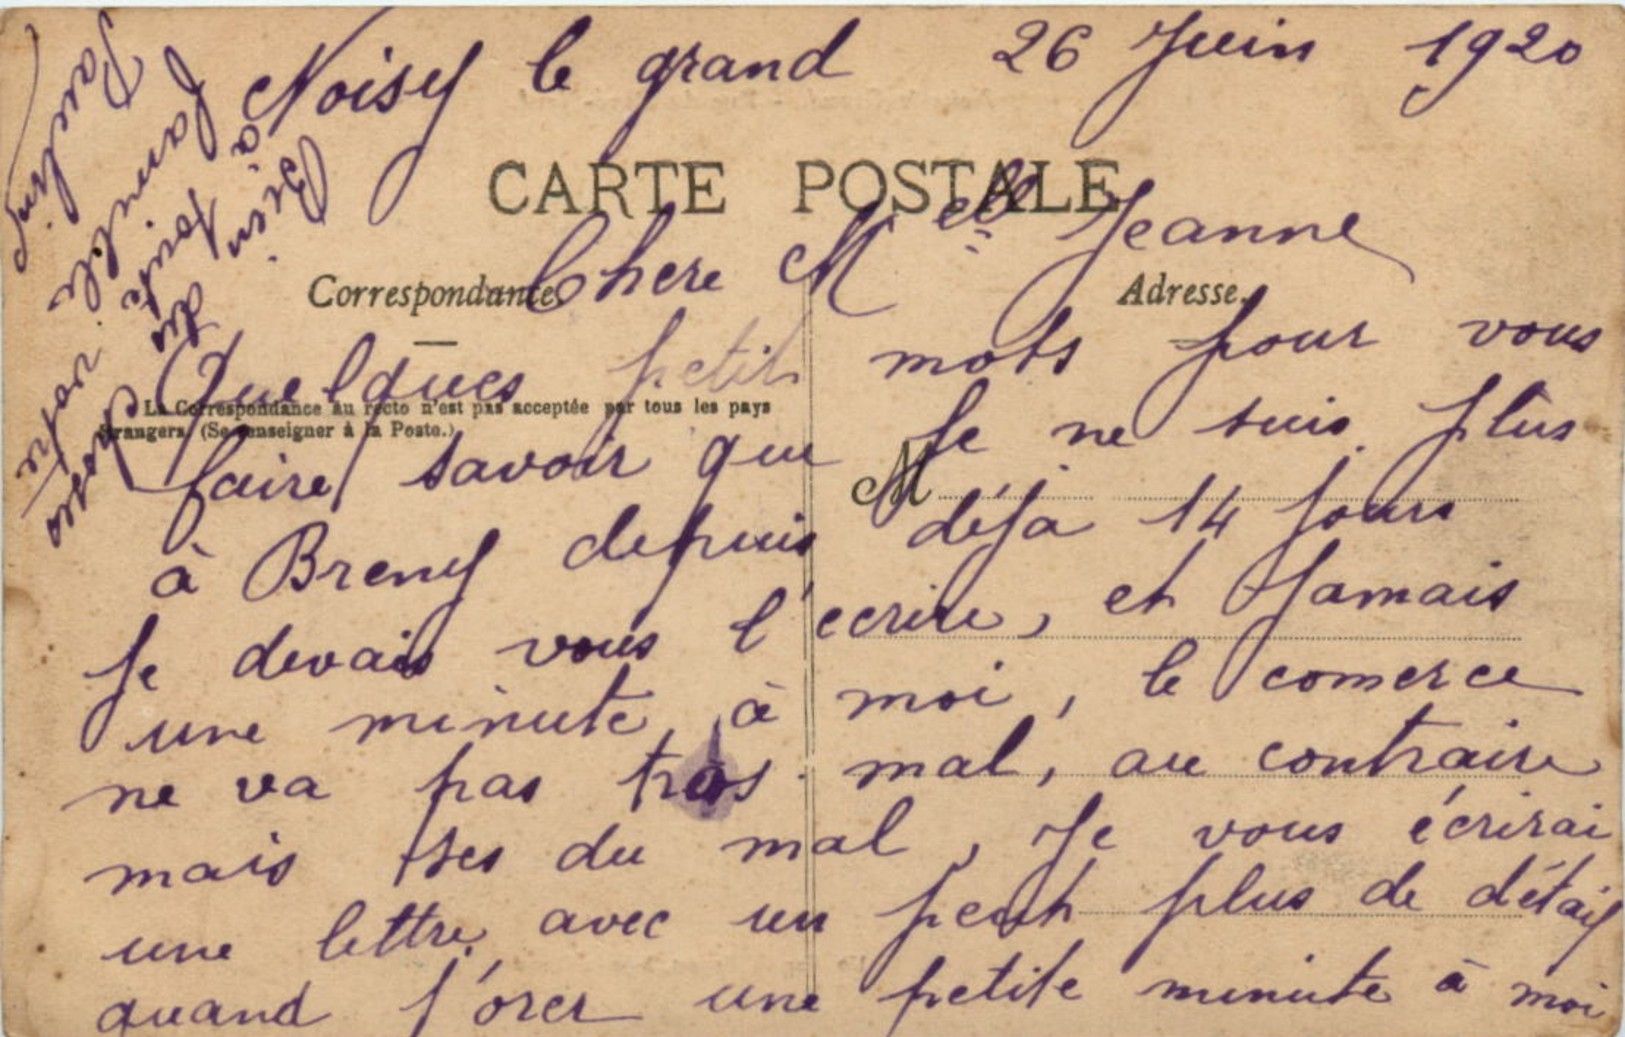 Noisy le grand 26 Juin 1920
CARTE POSTALE
Chere Melle Jeanne
Correspondance.
Adresse.
Quelques petit mots pour vous
La Correspondance au recto n'est pas acceptée par tous les pays
étrangers (Se renseigner à la Poste.)
faire savoir que Je ne suis plus
M
à Breny depuis déja 14 Jours
Je devais vous l'ecrire, et Jamais
une minute à moi, le comerce
ne va pas tros mal, au contraire
mais tres du mal, Je vous écrirai
une lettre avec un peut plus de détail
quand j'orer une petite minute à moi
Bien des choses
à toute votre
famille
Pauline